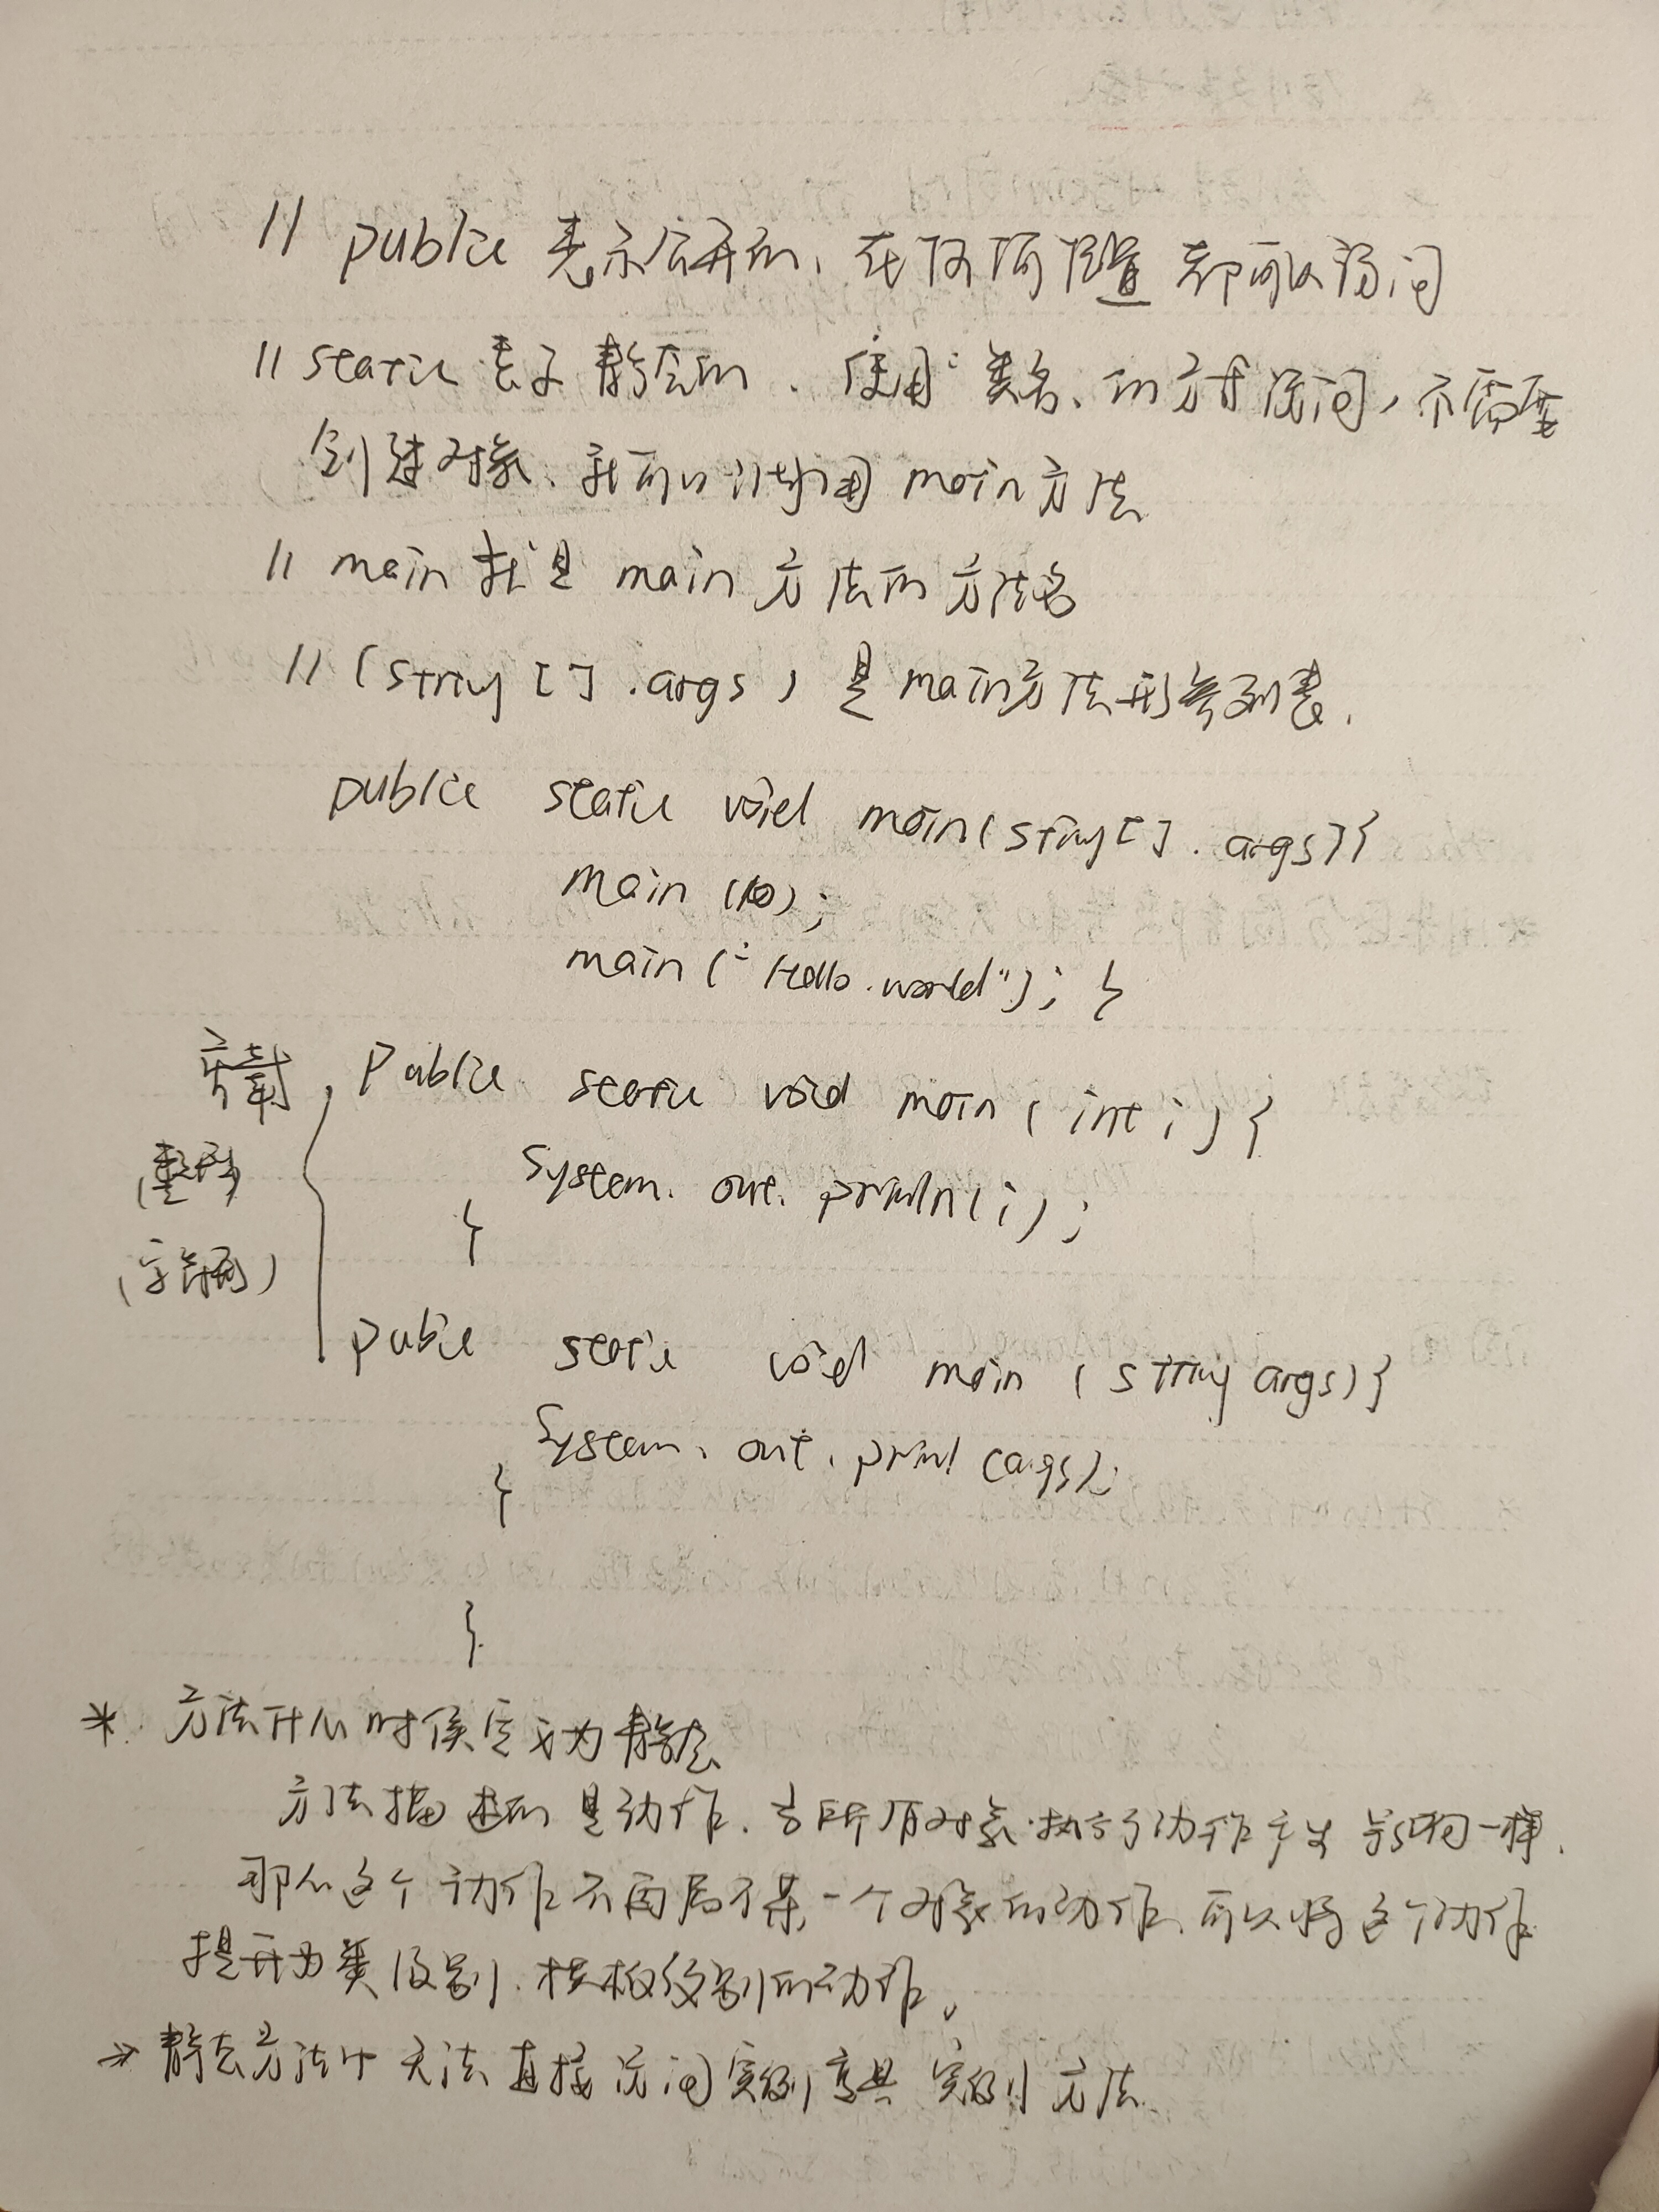 // public 表示公开的、在任何位置都可以访问
// static 表示静态的、使用"类名.的方式访问,不需要
创建对象、就可以调用 main方法
// main 就是 main 方法的方法名
// (String [] args) 是 main方法形参列表.
public static void main(String[] args){
main (10);
main ("Hello world"); }
public static void main (int i) {
重载
System. out. println(i);
(整形)
}
(字符串)
public static void main (String args){
System. out. print (args);
}
}
* 方法什么时候定义为静态
方法描述的是动作、当所有对象执行动作产生影响一样.
那么这个动作不再属于某一个对象的动作、可以将这个动作
提升为类级别、模板级别的动作。
→ 静态方法中 无法直接访问实例变量 实例方法.